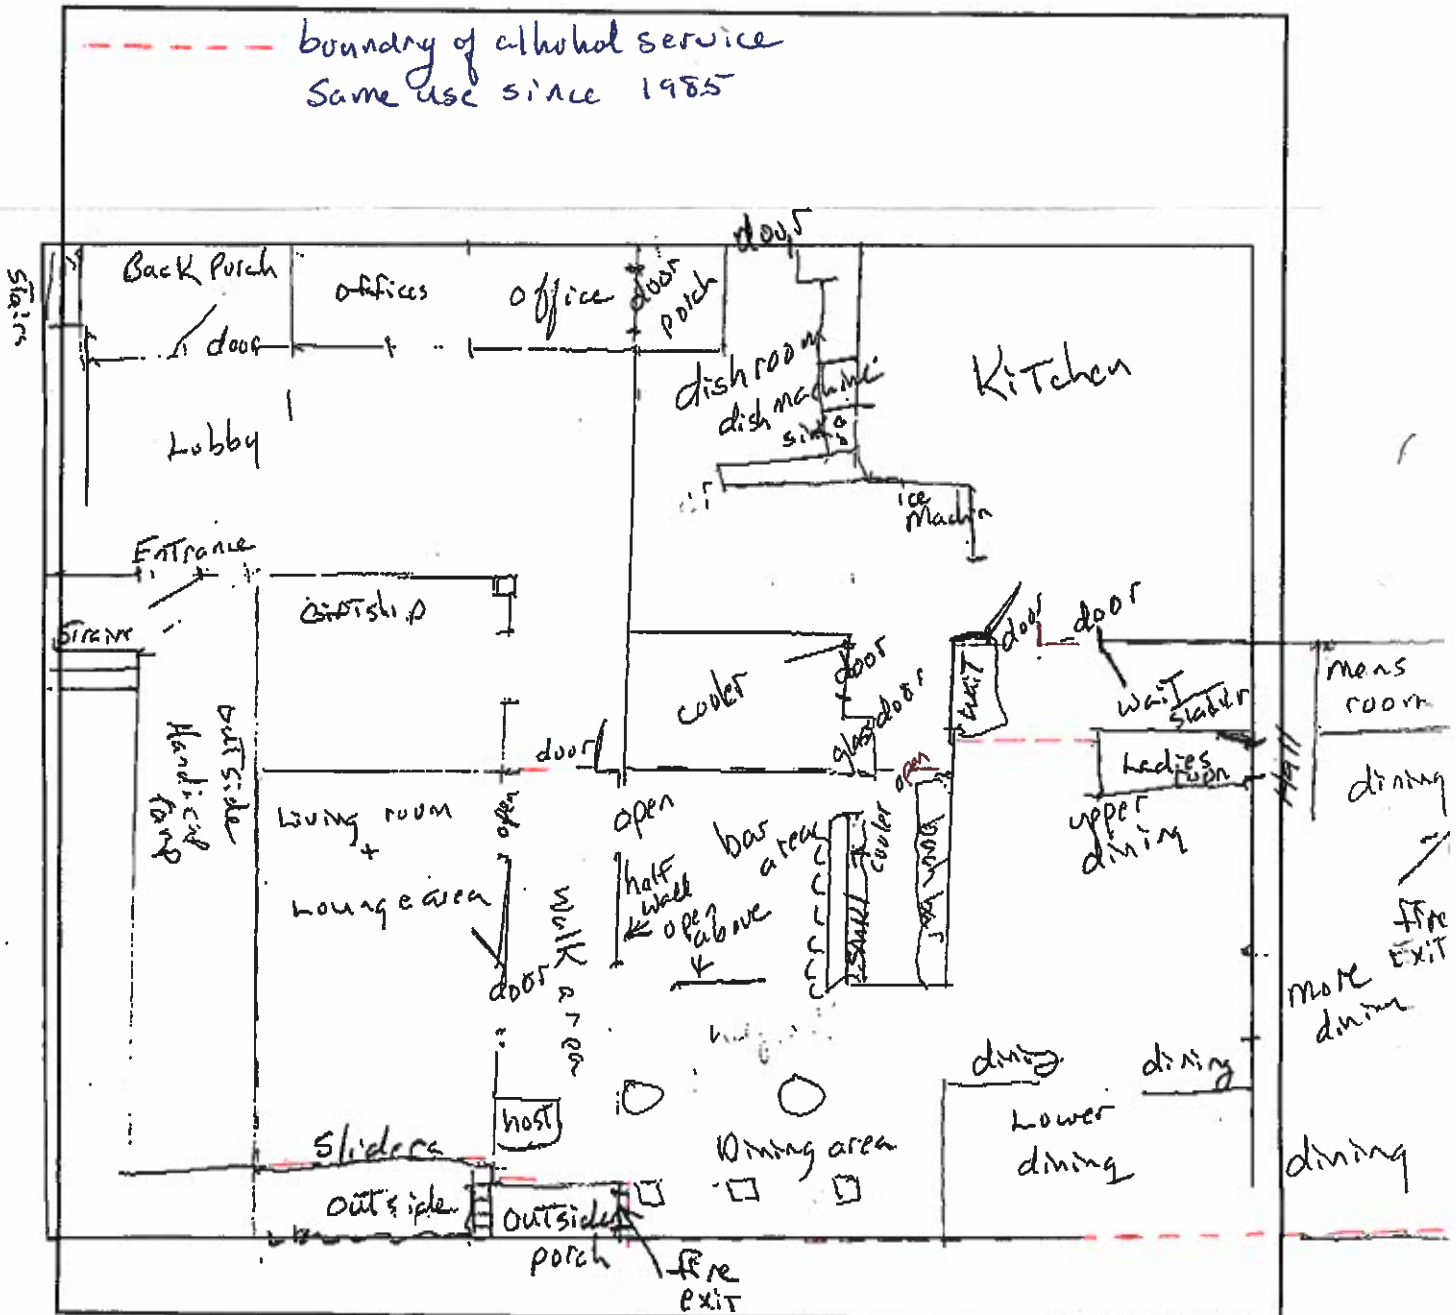 boundry of alhohol service
Same use since 1985
Stairs
Back Porch
door
offices
office
door
porch
door
Kitchen
dish room
dish machine
sink
ice
Machin
Lobby
Entrance
Giftship
outside
Handicap
ramp
cooler
door
glass door
wait
door
door
wait
station
mens
room
Ladies
room
Hall
door
open
open
open
Living room
+
Lounge area
door
walk area
half
wall
open
above
bar
area
cooler
upper
dining
dining
fire
exit
more
dining
host
Dining area
dining
dining
Lower
dining
dining
Sliders
outside
outside
porch
fire
exit